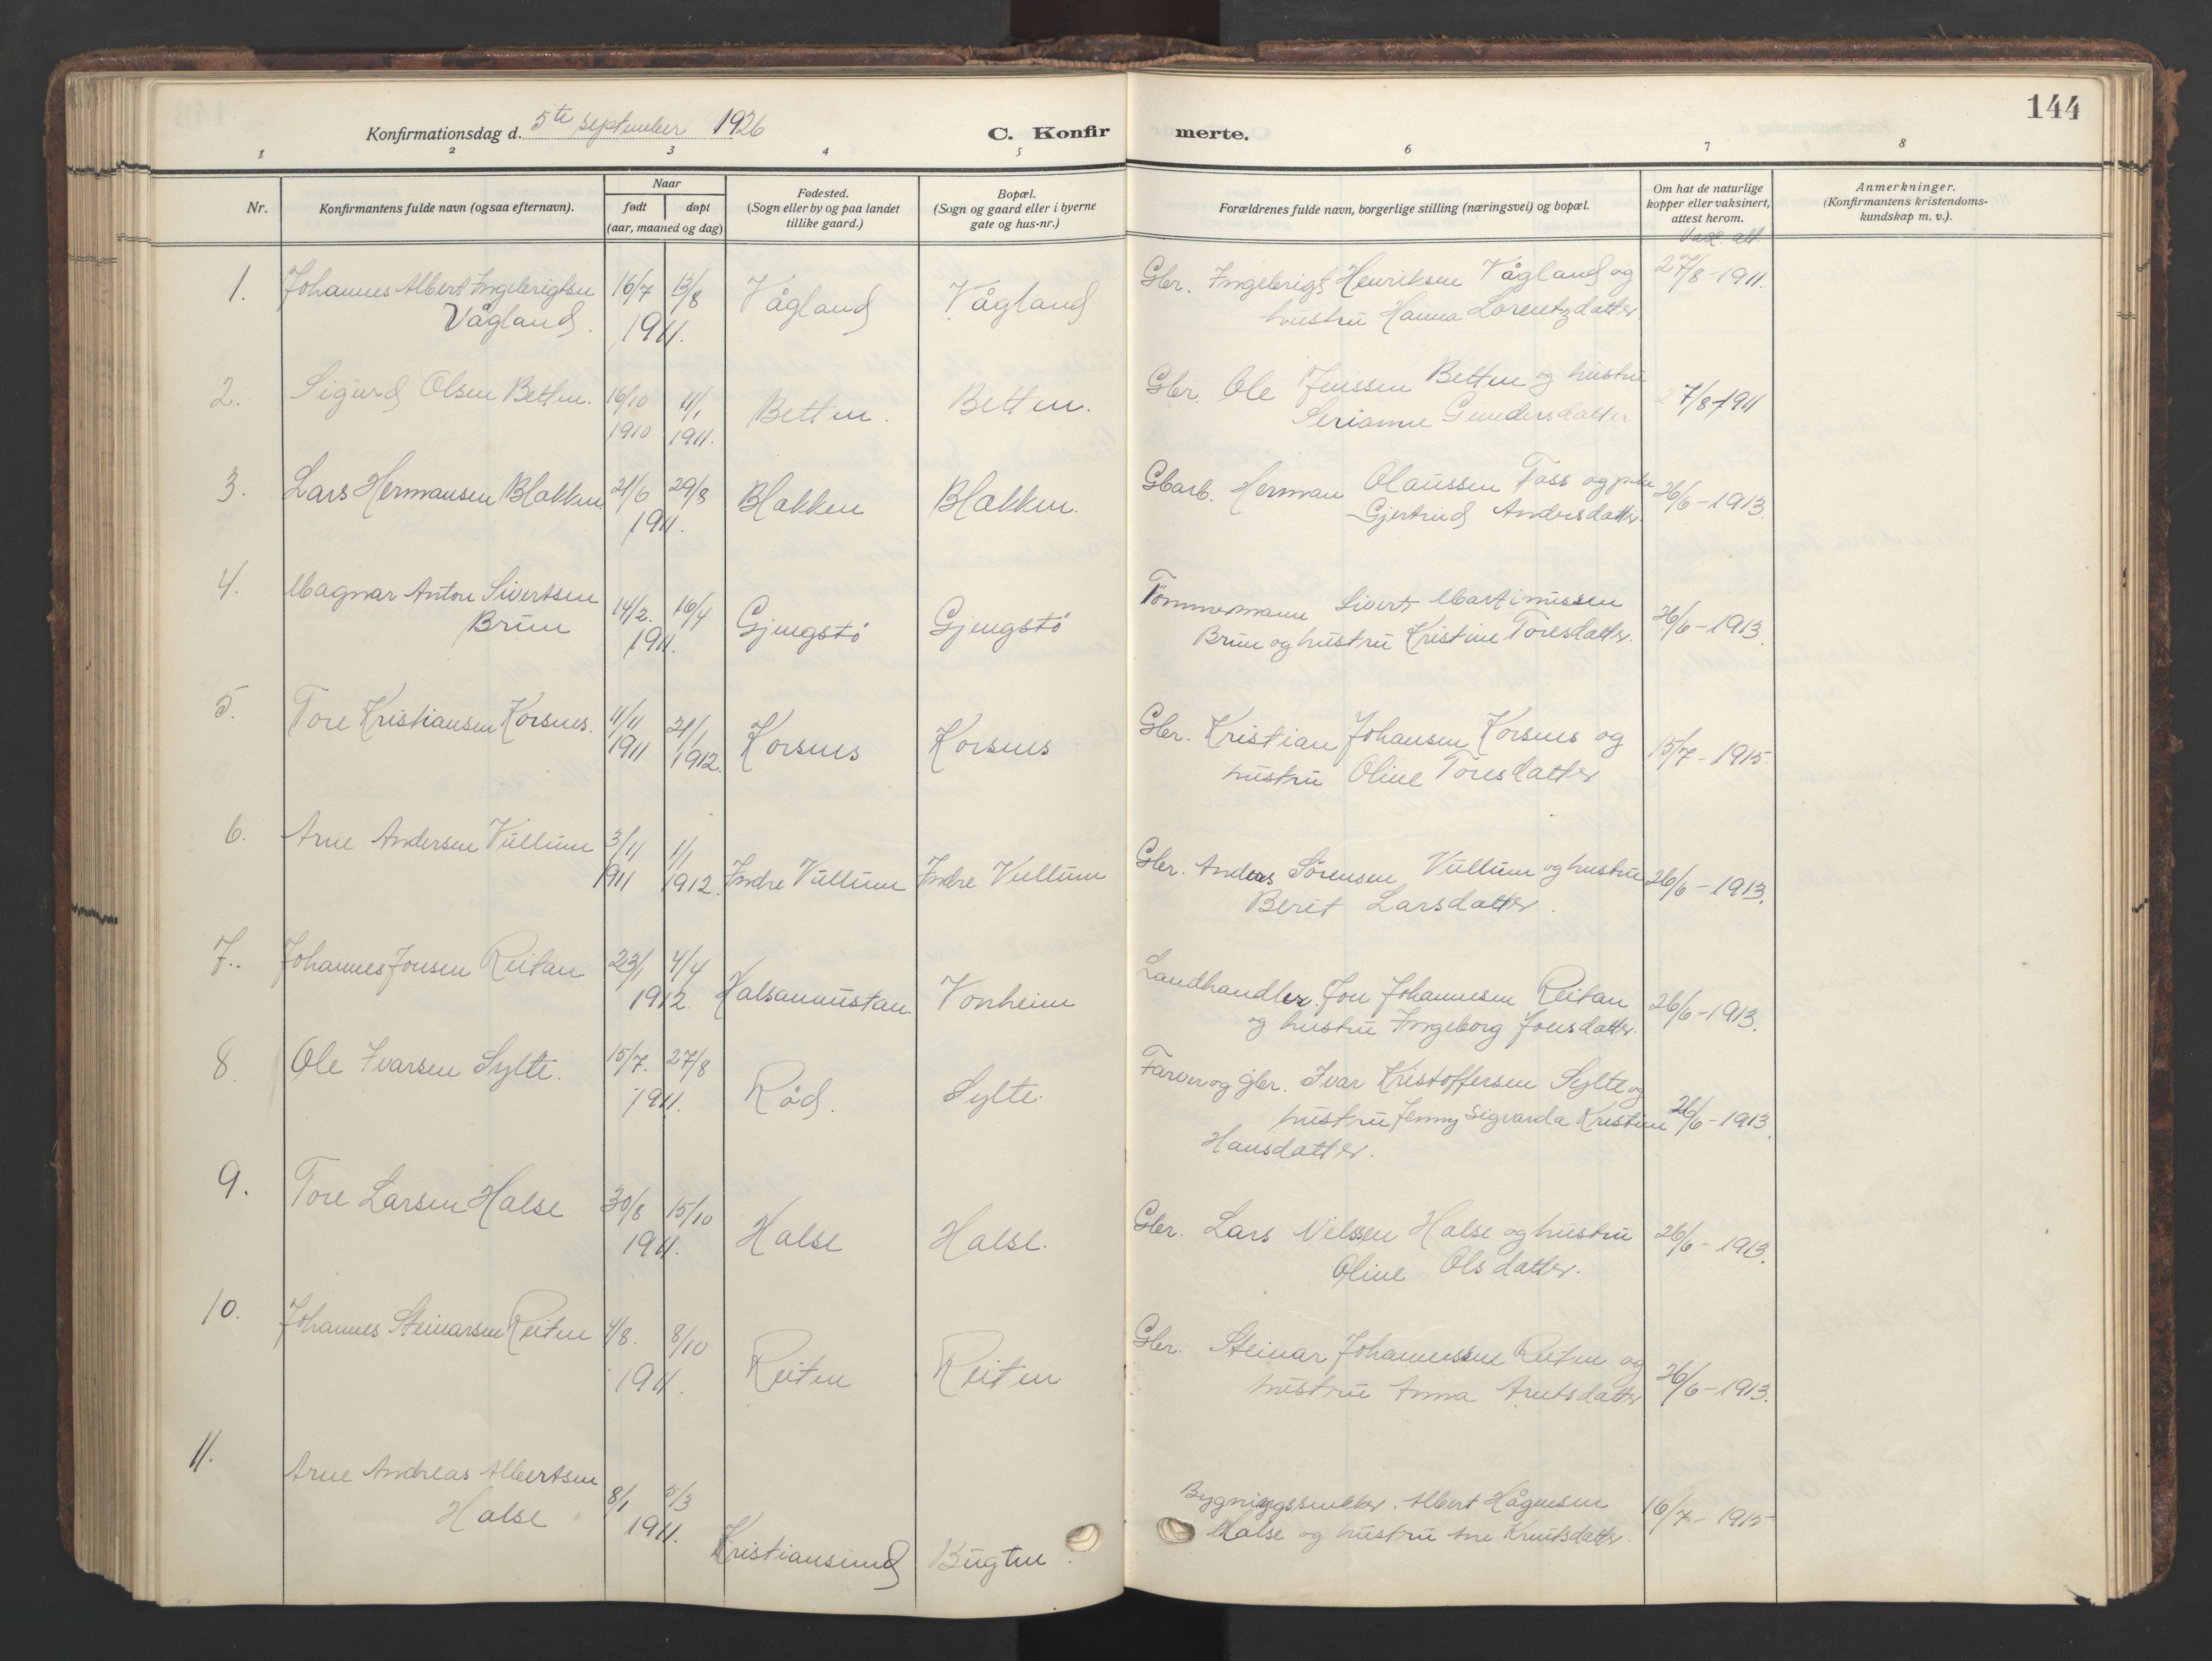 144
Konfirmationsdag d. 5te september 1926
C. Konfirmerte.
1 2 3 4 5 6 7 8
Nr.
Konfirmantens fulde navn (ogsaa efternavn).
Naar
født døpt
(aar, maaned og dag)
Fødested.
(Sogn eller by og paa landet
tillike gaard.)
Bopæl.
(Sogn og gaard eller i byerne
gate og hus-nr.)
Forældrenes fulde navn, borgerlige stilling (næringsvei) og bopæl.
Om hat de naturlige
kopper eller vaksinert,
attest herom.
Anmerkninger.
(Konfirmantens kristendoms-
kundskap m. v.).
Vacc. att.
1. Johannes Albert Ingebrigtsen 16/7 13/8 Vågland Vågland Gbr. Ingebrigt Henriksen Vågland og 27/8-1911.
Vågland. 1911. hustru Hanna Lorentzdatter.
2. Sigurd Olsen Betten. 16/10 11/1 Betten. Betten. Gbr. Ole Jenssen Betten og hustru 27/8-1911
1910 1911. Serianne Gundersdatter
3. Lars Hermansen Blakken. 21/6 29/8 Blakken Blakken. Gbarb. Herman Olaussen Foss og pike 26/6-1913.
1911. Gjertrud Andersdatter.
4. Magnar Anton Sivertsen 14/2. 16/4 Gjengstø Gjengstø Tømmermann Sivert Martinussen 26/6-1913.
Brun 1911. Brun og hustru Kristine Toresdatter.
5. Tore Kristiansen Korsnes. 4/11 21/1 Korsnes Korsnes Gbr. Kristian Johansen Korsnes og 15/7-1915.
1911 1912. hustru Oline Toresdatter
6. Arne Andersen Vullum 3/11 1/1 Indre Vullum Indre Vullum Gbr. Anders Sørensen Vullum og hustru 26/6-1913.
1911 1912. Berit Larsdatter.
7. Johannes Jonsen Reitan 23/1 4/4 Halsanaustan. Vonheim Landhandler. Jon Johannesen Reitan 26/6-1913.
1912. og hustru Ingeborg Jonsdatter.
8. Ole Ivarsen Sylte. 15/7. 27/8 Rød. Sylte. Farver og gbr. Ivar Kristoffersen Sylte og
1911. hustru Jenny Sigvarda Kristine 26/6-1913.
Hansdatter.
9. Tore Larsen Halse 30/8 15/10 Halse Halse. Gbr. Lars Nilssen Halse og hustru 26/6-1913.
1911. Oline Olsdatter.
10. Johannes Steinarsen Reiten 4/8. 8/10 Reiten Reiten Gbr. Steinar Johannessen Reiten og 26/6-1913.
1911. hustru Anna Arntsdatter
11. Arne Andreas Albertsen 8/1 5/3 Kristiansund Bugten. Bygningssnekker. Albert Hågensen 16/7-1915
Halse 1911. Halse og hustru Ane Knutsdatter.